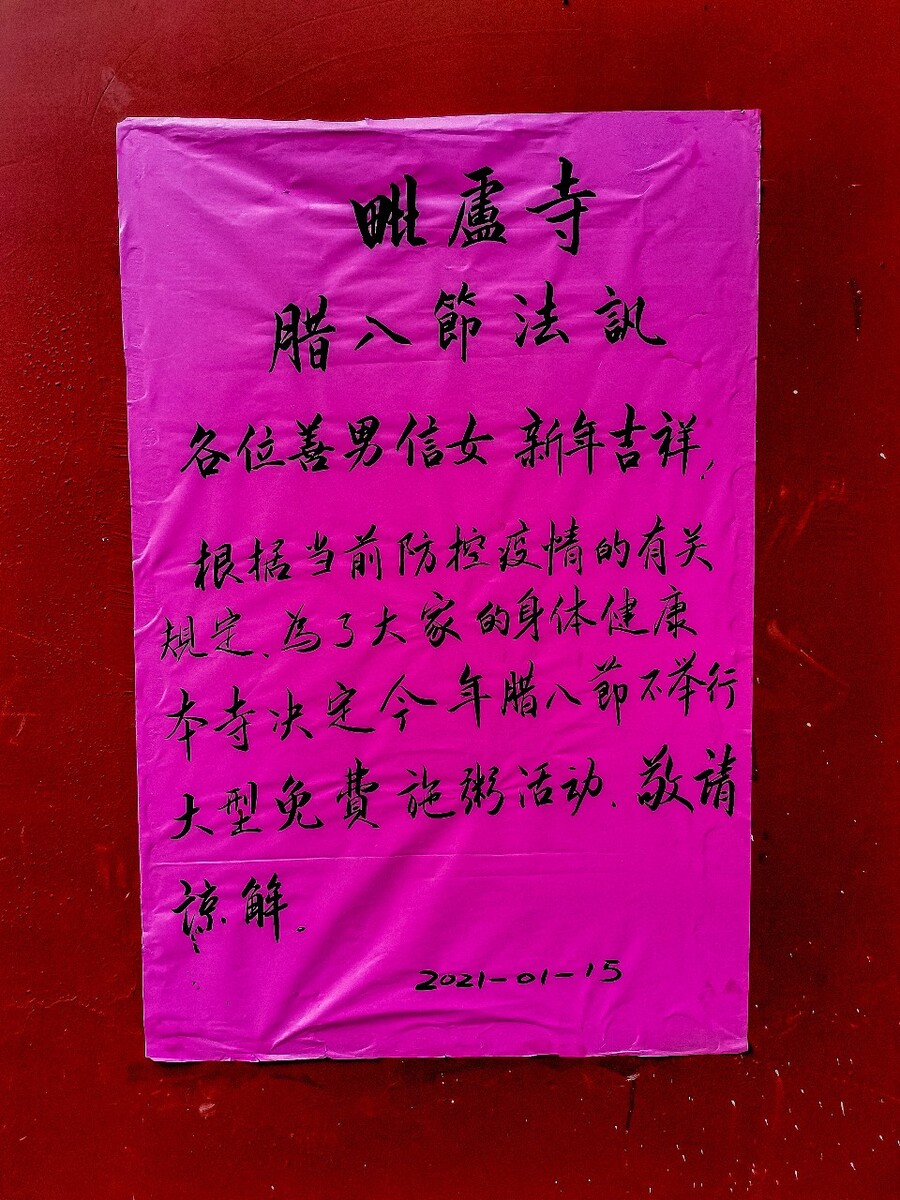 毗盧寺
腊八節法訊
各位善男信女 新年吉祥!
根据当前防控疫情的有关
規定、為了大家的身体健康
本寺决定今年腊八節不举行
大型免費施粥活动、敬请
諒解。
2021-01-15